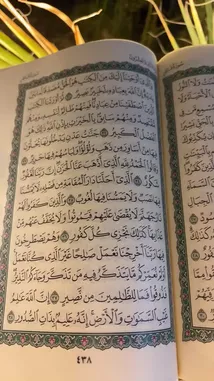 وَٱلَّذِىٓ أَوْحَيْنَآ إِلَيْكَ مِنَ ٱلْكِتَٰبِ هُوَ ٱلْحَقُّ مُصَدِّقًا لِّمَا
بَيْنَ يَدَيْهِ إِنَّ ٱللَّهَ بِعِبَادِهِۦ لَخَبِيرٌۢ بَصِيرٌ ٣١ ثُمَّ أَوْرَثْنَا ٱلْكِتَٰبَ
ٱلَّذِينَ ٱصْطَفَيْنَا مِنْ عِبَادِنَا فَمِنْهُمْ ظَالِمٌ لِّنَفْسِهِۦ
وَمِنْهُم مُّقْتَصِدٌ وَمِنْهُمْ سَابِقٌۢ بِٱلْخَيْرَٰتِ بِإِذْنِ ٱللَّهِ ذَٰلِكَ هُوَ
ٱلْفَضْلُ ٱلْكَبِيرُ ٣٢ جَنَّٰتُ عَدْنٍ يَدْخُلُونَهَا يُحَلَّوْنَ
فِيهَا مِنْ أَسَاوِرَ مِن ذَهَبٍ وَلُؤْلُؤًا وَلِبَاسُهُمْ فِيهَا حَرِيرٌ ٣٣
وَقَالُوا۟ ٱلْحَمْدُ لِلَّهِ ٱلَّذِىٓ أَذْهَبَ عَنَّا ٱلْحَزَنَ إِنَّ رَبَّنَا لَغَفُورٌ
شَكُورٌ ٣٤ ٱلَّذِىٓ أَحَلَّنَا دَارَ ٱلْمُقَامَةِ مِن فَضْلِهِۦ لَا يَمَسُّنَا
فِيهَا نَصَبٌ وَلَا يَمَسُّنَا فِيهَا لُغُوبٌ ٣٥ وَٱلَّذِينَ كَفَرُوا۟ لَهُمْ
نَارُ جَهَنَّمَ لَا يُقْضَىٰ عَلَيْهِمْ فَيَمُوتُوا۟ وَلَا يُخَفَّفُ عَنْهُم مِّنْ
عَذَابِهَا كَذَٰلِكَ نَجْزِى كُلَّ كَفُورٍ ٣٦ وَهُمْ يَصْطَرِخُونَ
فِيهَا رَبَّنَآ أَخْرِجْنَا نَعْمَلْ صَٰلِحًا غَيْرَ ٱلَّذِى كُنَّا نَعْمَلُ
أَوَلَمْ نُعَمِّرْكُم مَّا يَتَذَكَّرُ فِيهِ مَن تَذَكَّرَ وَجَآءَكُمُ ٱلنَّذِيرُ
فَذُوقُوا۟ فَمَا لِلظَّٰلِمِينَ مِن نَّصِيرٍ ٣٧ إِنَّ ٱللَّهَ عَٰلِمُ
غَيْبِ ٱلسَّمَٰوَٰتِ وَٱلْأَرْضِ إِنَّهُۥ عَلِيمٌۢ بِذَاتِ ٱلصُّدُورِ ٣٨
٤٣٨